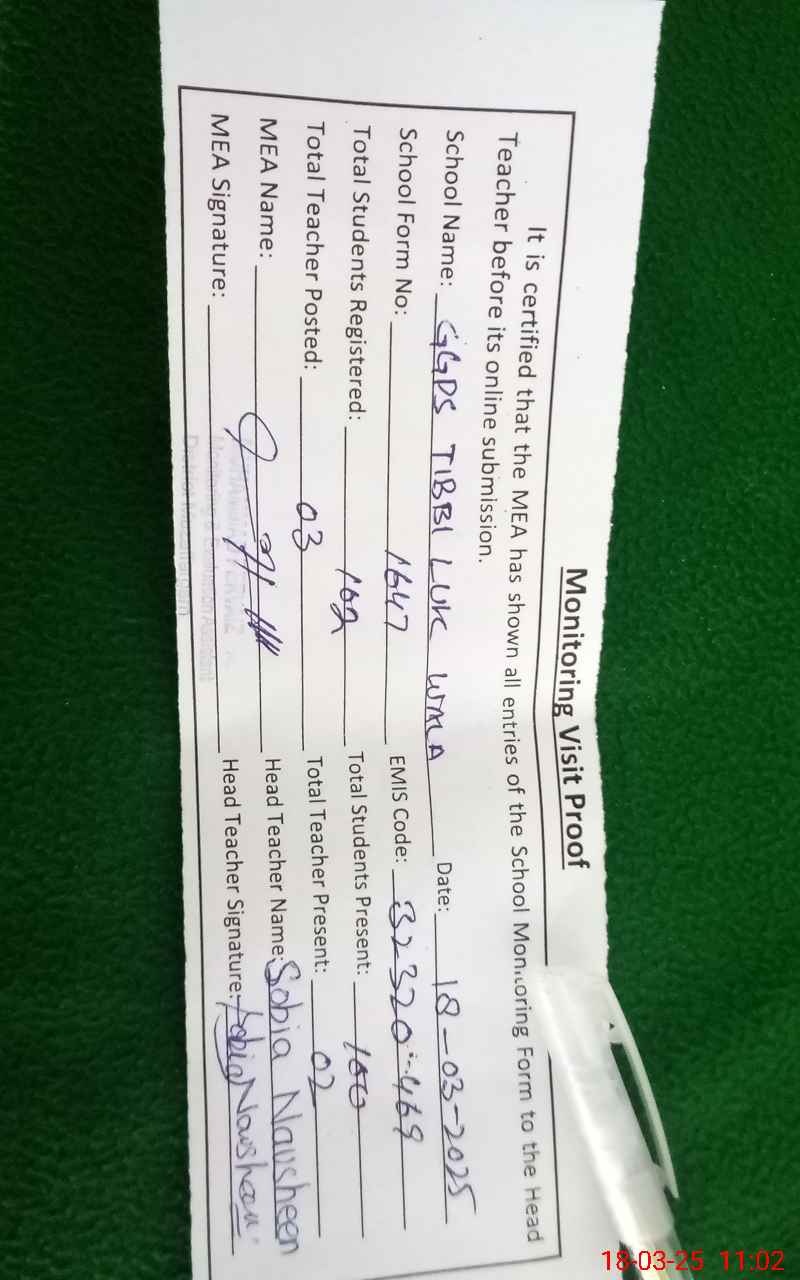 Monitoring Visit Proof
It is certified that the MEA has shown all entries of the School Monitoring Form to the Head
Teacher before its online submission.
School Name: GGPS TIBBI LUK WMLA Date: 18-03-2025
School Form No: 1647 EMIS Code: 32320469
Total Students Registered: 102 Total Students Present: 100
Total Teacher Posted: 03 Total Teacher Present: 02
MEA Name: Head Teacher Name: Sobia Nausheen
MEA Signature: Head Teacher Signature: Sobia Nausheen
Monitoring & Evaluation Assistant
18-03-25 11:02